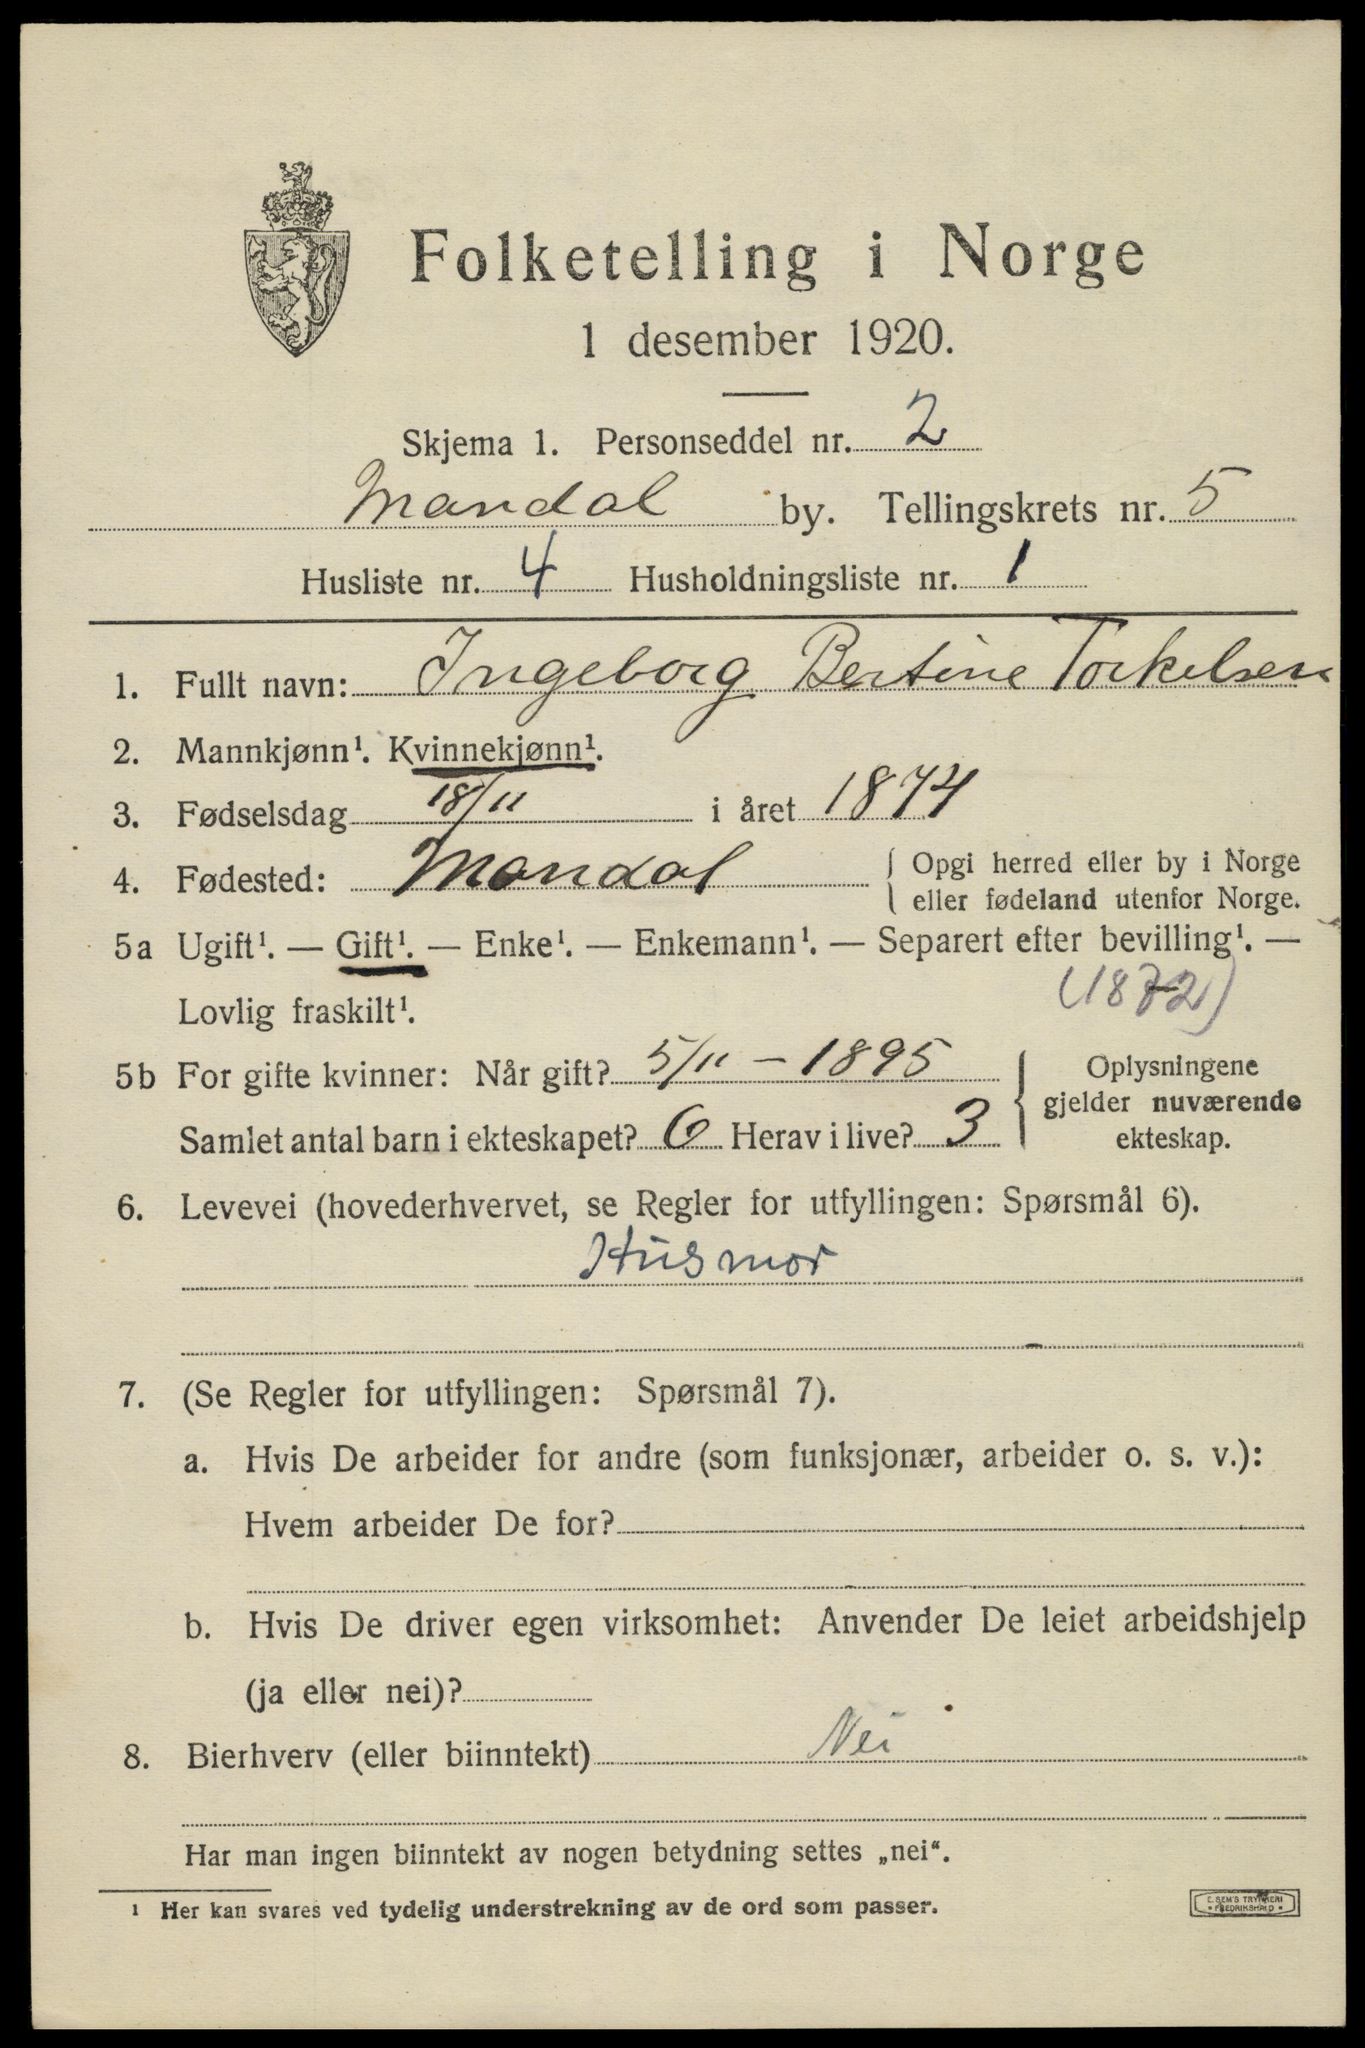 Folketelling i Norge
1 desember 1920.
Skjema 1. Personseddel nr. 2
Mandal by. Tellingskrets nr. 5
Husliste nr. 4 Husholdningsliste nr. 1
1. Fullt navn: Ingeborg Bertine Torkelsen
2. Mannkjønn¹. Kvinnekjønn¹.
3. Fødselsdag 18/11 i året 1874
4. Fødested: Mandal { Opgi herred eller by i Norge
eller fødeland utenfor Norge.
5a Ugift¹. — Gift¹. — Enke¹. — Enkemann¹. — Separert efter bevilling¹. —
Lovlig fraskilt¹. (1872)
5b For gifte kvinner: Når gift? 5/11 – 1895
Samlet antal barn i ekteskapet? 6 Herav i live? 3
{ Oplysningene
gjelder nuværende
ekteskap.
6. Levevei (hovederhvervet, se Regler for utfyllingen: Spørsmål 6).
Husmor
7. (Se Regler for utfyllingen: Spørsmål 7).
a. Hvis De arbeider for andre (som funksjonær, arbeider o. s. v.):
Hvem arbeider De for?
b. Hvis De driver egen virksomhet: Anvender De leiet arbeidshjelp
(ja eller nei)?
8. Bierhverv (eller biinntekt) Nei
Har man ingen biinntekt av nogen betydning settes „nei“.
¹ Her kan svares ved tydelig understrekning av de ord som passer.
E. SEM'S TRYKKERI
* FREDRIKSHALD *